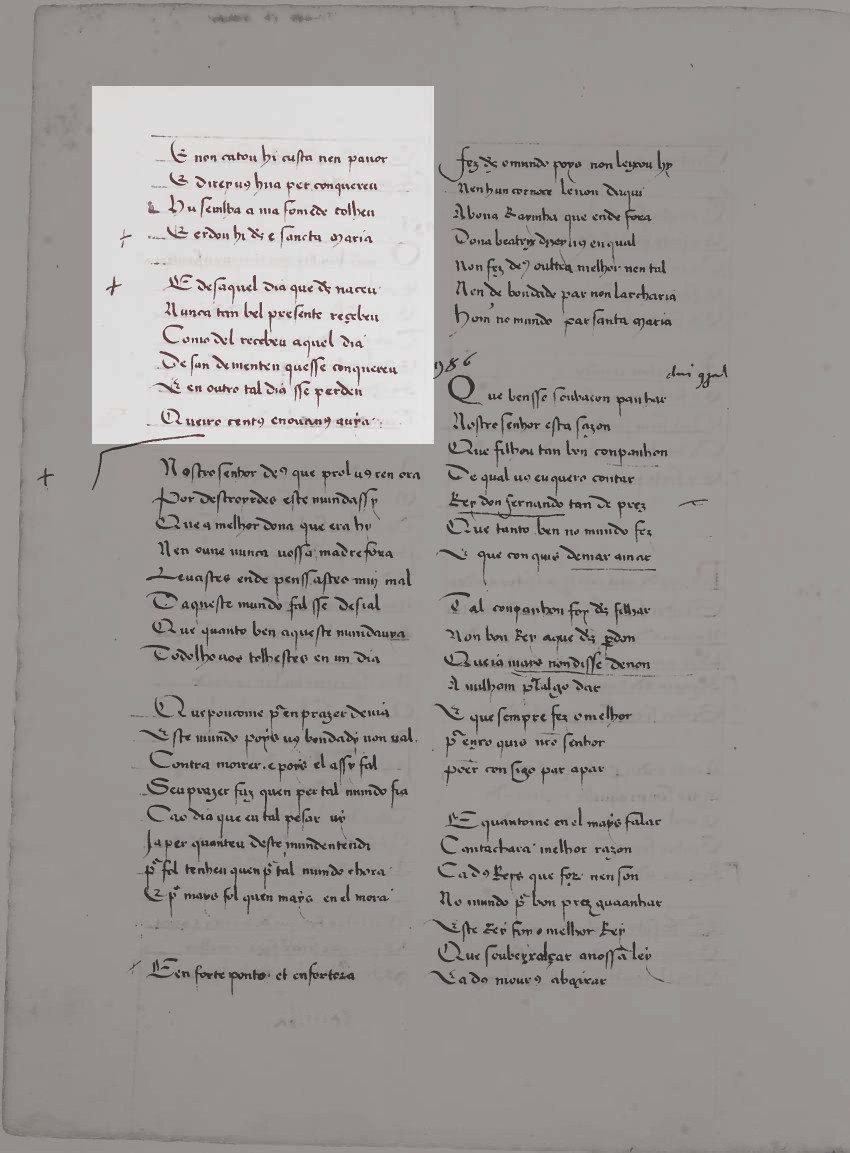 E non catou hi custa nen pauor
E direyuꝯ hũa per conquereu
Hu semlha a ma fomede tolheu
E erdou hi de e sancta Maria
E desaquel dia que ds naceu
Nunca tan bel presente reçebeu
Como del recebeu aquel dia
De san dementen quesse conquereu
E en outro tal dia sse perdeu
Queiro
Nostro senhor deꝯ que prol uꝯ ten ora
Por destroyrdes este mundassy
Que a melhor dona que era hy
Nen ouue nunca uossa madre fora
Leuastes ende penssastes mui mal
Daqueste mundo fal sse desial
Que quanto ben aqueste mundauya
Todolhouos tolhestes en un dia
Que poucome p̃ en prazer deuia
Este mundo poys uꝯ bondady non ual
Contra morrer. e poys el assy fal
Seu prazer faz quen per tal mundo fia
Cao dia que eu tal pesar uy
Ja per quanteu deste mundentendi
p̃ fol tenheu quen p̃ tal mundo chora
E p̃ mays fol quen mays en el mora
En forte ponto. et enforteza
fez ds o mundo poys non leyxou hy
Nen hun connoce leuou daqui
A bona Rayinha que ende fora
Dona beatriz direyuꝯ en qual
Non fez deꝯ outra melhor nen tal
Nen de bondade par non lacharia
Hom̃ no mundo par santa Maria
186
Que bensse soubacon panhar
Nostro senhor esta sazon
Que filhou tan bon conpanhon
De qual uꝯ eu quero contar
Rey don fernando tan de prez
Que tanto ben no mundo fez
E que conquis demar amar
Tal conpanhon foy ds filhar
Non bon Rey aque ds perdon
Que ia mays non disse denon
A nulhom p̃ lalgo dar
E que sempre fez o melhor
p̃ en xo quis nr̃o senhor
poer consigo par apar
E quantome en el mays falar
Tantachara melhor razon
Ca dꝯ Reys que foy nen son
No mundo p̃ bon prez guaanhar
Este Rey foy o melhor Rey
Que soubeyxalçar a nossa ley
E a dꝯ mourꝯ abaixar